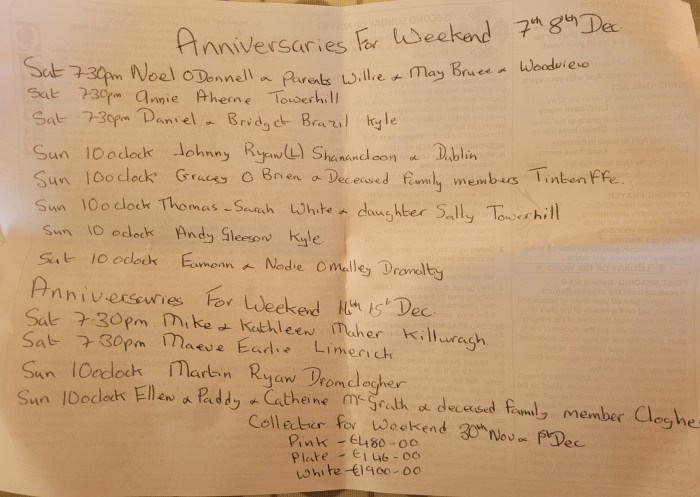 Anniversaries For Weekend 7th 8th Dec
Sat 7-30pm Noel O Donnell & Parents Willie & May Bruce & Woodview
Sat 7-30pm Annie Aherne Towerhill
Sat 7-30pm Daniel & Bridget Brazil Kyle
Sun 10 oclock Johnny Ryan (L) Shanancloon & Dublin
Sun 10 oclock Gracey O Brien & Deceased family members
Sun 10 oclock Thomas - Sarah White & daughter Sally Towerhill
Sun 10 oclock Andy Gleeson Kyle
Sat 10 oclock Eamonn & Nodie O malley Dromalty
Anniversaries For Weekend 14th 15th Dec
Sat 7-30pm Mike & Kathleen Maher Killuragh
Sat 7-30pm Maeve Earlie Limerich
Sun 10oclock Martin Ryan Dromclogher
Sun 10oclock Ellen & Paddy & Catheine McGrath & deceased family member Cloghe
Collection for Weekend 30th Nov & 1st Dec
Pink - €480-00
Plate - €146-00
White - €1900-00